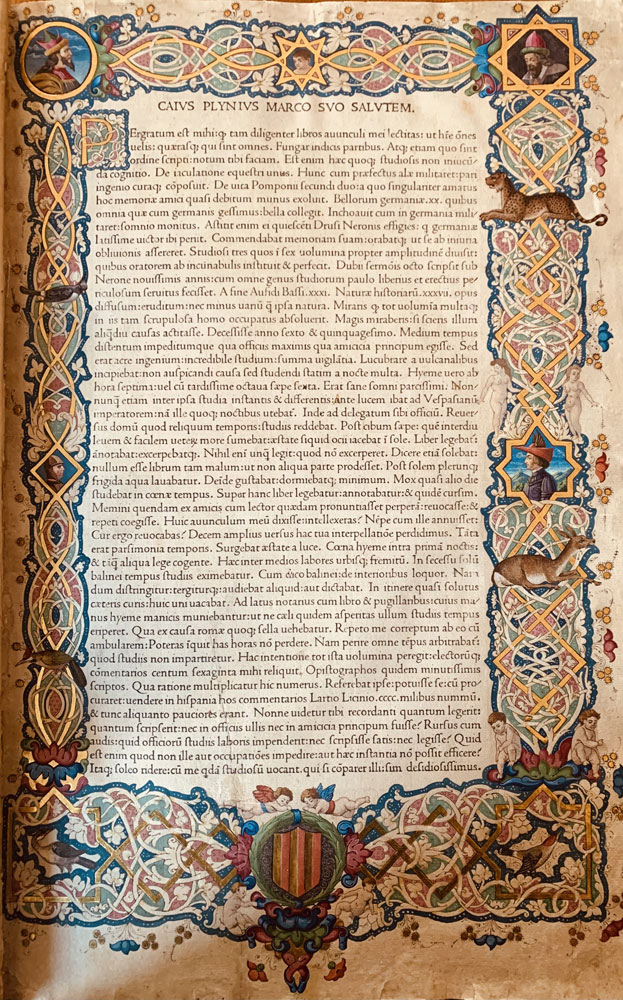 CAIVS PLYNIVS MARCO SVO SALVTEM.
PErgratum est mihi q tam diligenter libros auunculi mei lectitas: ut hr̃e ões
uelis: quærasq; qui sint omnes. Fungar indicis partibus. Atq; etiam quo sint
ordine scripti: notum tibi faciam. Est enim hæc quoq; studiosis non iniucũ/
da cognitio. De iaculatione equestri unus. Hunc cum præfectus alæ militaret: pari
ingenio curaq; cõposuit. De uita Pomponii secundi duo: a quo singulariter amatus
hoc memoriæ amici quasi debitum munus exoluit. Bellorum germaniæ .xx. quibus
omnia quæ cum germanis gessimus: bella collegit. Inchoauit cum in germania mili/
taret: somnio monitus. Astitit enim ei quiescẽti Drusi Neronis effigies: q germaniæ
latissime uictor ibi periit. Commendabat memoriam suam: orabatq; ut se ab iniuria
obliuionis assereret. Studiosi tres quos i sex uolumina propter amplitudinẽ diuisit:
quibus oratorem ab incunabulis instituit & perfecit. Dubii sermõis octo scripsit sub
Nerone nouissimis annis: cum omne genus studiorum paulo liberius et erectius pe/
riculosum seruitus fecisset. A fine Aufidii Bassi .xxxi. Naturæ historiarũ .xxxvii. opus
diffusum: eruditum nec minus uariũ q̃ ipsa natura. Miraris q tot uolumina multaq;
in iis tam scrupulosa homo occupatus absoluerit. Magis miraberis: si scieris illum
aliq̃diu causas actitasse. Decessisse anno sexto & quinquagesimo. Medium tempus
distentum impeditumque qua officiis maximis qua amicicia principum egisse. Sed
erat acre ingenium: incredibile studium: summa uigilãtia. Lucubrare a uulcanalibus
incipiebat: non auspicandi causa sed studendi statim a nocte multa. Hyeme uero ab
hora septima: uel cũ tardissime octaua sæpe sexta. Erat sane somni parcissimi. Non/
nunq̃ etiam inter ipsa studia instantis & differentis: Ante lucem ibat ad Vespasianũ
imperatorem: nã ille quoq; noctibus utebat. Inde ad delegatum sibi officiũ. Reuer/
sus domũ quod reliquum temporis: studiis reddebat. Post cibum sæpe: quẽ interdiu
leuem & facilem ueterẽ more sumebat: æstate siquid ocii iacebat ĩ sole. Liber legebat:
ãnotabat: excerpebatq;. Nihil eni unq̃ legit: quod nõ excerperet. Dicere etiã solebat:
nullum esse librum tam malum: ut non aliqua parte prodesset. Post solem plerunq;
frigida aqua lauabatur. Deĩde gustabat: dormiebatq; minimum. Mox quasi alio die
studebat in cœnæ tempus. Super hanc liber legebatur: annotabatur: & quidẽ cursim.
Memini quendam ex amicis cum lector quædam pronuntiasset perperã: reuocasse: &
repeti coegisse. Huic auunculum meũ dixisse: intellexeras? Nẽpe cum ille annuisset:
Cur ergo reuocabas? Decem amplius uersus hac tua interpellatiõe perdidimus. Tãta
erat parsimonia temporis. Surgebat æstate a luce. Cœna hyeme intra primã noctis:
& tãq̃ aliqua lege cogente. Hæc inter medios labores urbisq; fremitũ. In secessu solũ
balinei tempus studiis eximebatur. Cum dico balinei: de interioribus loquor. Nam
dum distringitur: tergiturq; : audiebat aliquid: aut dictabat. In itinere quasi solutus
cæteris curis: huic uni uacabat. Ad latus notarius cum libro & pugillaribus: cuius ma/
nus hyeme manicis muniebantur: ut ne cæli quidem asperitas ullum studiis tempus
eriperet. Qua ex causa romæ quoq; sella uehebatur. Repeto me correptum ab eo cũ
ambularem: Poteras ĩquit has horas nõ perdere. Nam perire omne tẽpus arbitrabat:
quod studiis non impartiretur. Hac intentione tot ista uolumina peregit: electorũq;
cõmentarios centum sexaginta mihi reliquit. Opistographos quidem minutissimis
scriptos. Qua ratione multiplicatur hic numerus. Referebat ipse: potuisse se: cũ pro/
curaret: uendere in hispania hos commentarios Lartio Licinio .cccc. milibus nummũ,
& tunc aliquanto pauciores erant. Nonne uidetur tibi recordanti quantum legerit:
quantum scripserit: nec in officiis ullis nec in amicicia principum fuisse? Rursus cum
audis: quid officiorũ studiis laboris impenderit: nec scripsisse satis: nec legisse? Quid
est enim quod non ille aut occupatiões impedire: aut hæc instantia nõ possit efficere?
Itaq; soleo ridere: cũ me qdã studiosũ uocant. qui si cõparer illi: sum desidiosissimus.